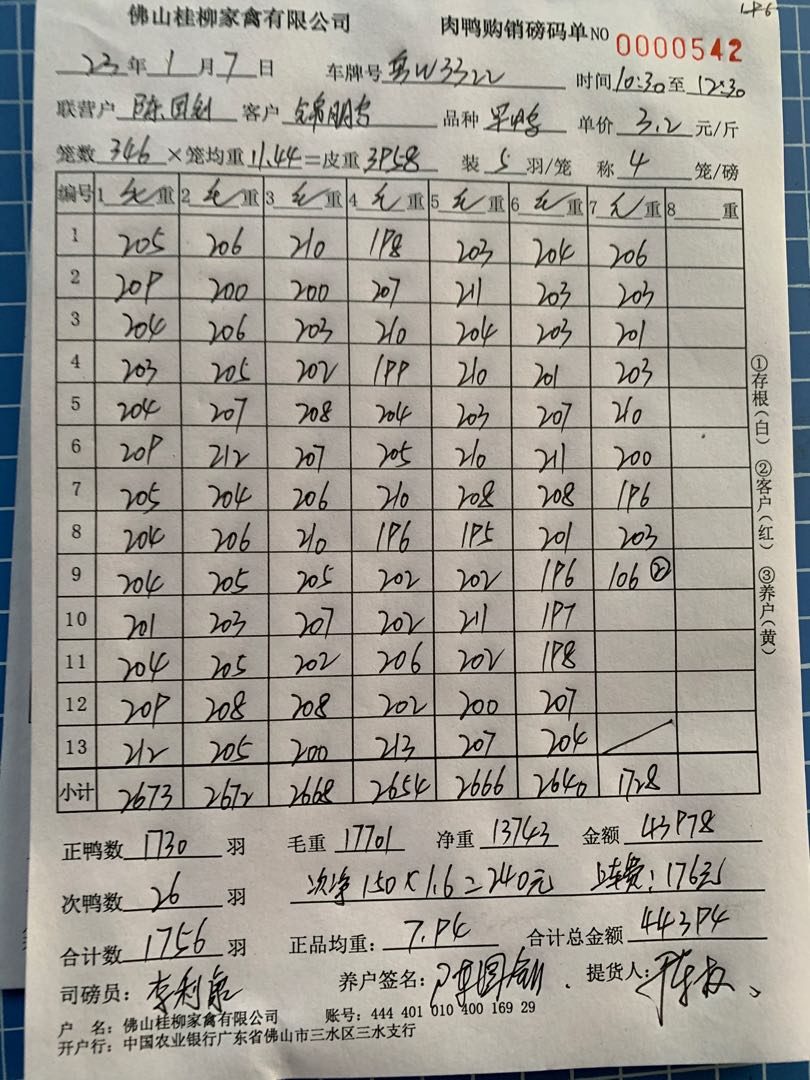 佛山桂柳家禽有限公司 肉鸭购销磅码单 NO 0000542
23年1月7日 车牌号 粤W3322 时间10:30至12:30
联营户 陈国创 客户 锦朋 品种 单价 3.2 元/斤
笼数 346 ×笼均重 11.44 =皮重 3958 装 5 羽/笼 称 4 笼/磅
编号 1 毛 重 2 毛 重 3 毛 重 4 毛 重 5 毛 重 6 毛 重 7 毛 重 8 重
1 205 206 210 198 203 204 206
2 209 200 200 207 211 203 203
3 204 206 203 210 204 203 201
4 203 205 202 199 210 201 203
5 204 207 208 204 203 207 210
6 209 212 207 205 210 211 200
7 205 204 206 210 208 208 196
8 204 206 210 196 195 201 203
9 204 205 205 202 202 196 106 ②
10 201 203 207 202 211 197
11 204 205 202 206 202 198
12 209 208 208 202 200 207
13 212 205 200 213 207 204
小计 2673 2672 2668 2654 2666 2640 1728
正鸭数 1730 羽 毛重 17701 净重 13743 金额 43978
次鸭数 26 羽 次净150×1.6=240元 上车费:176元
合计数 1756 羽 正品均重: 7.94 合计总金额 44394
司磅员: 李利 养户签名: 陈国创 提货人:
户 名: 佛山桂柳家禽有限公司 账号: 444 401 010 400 169 29
开户行: 中国农业银行广东省佛山市三水区三水支行
①存根(白) ②客户(红) ③养户(黄)